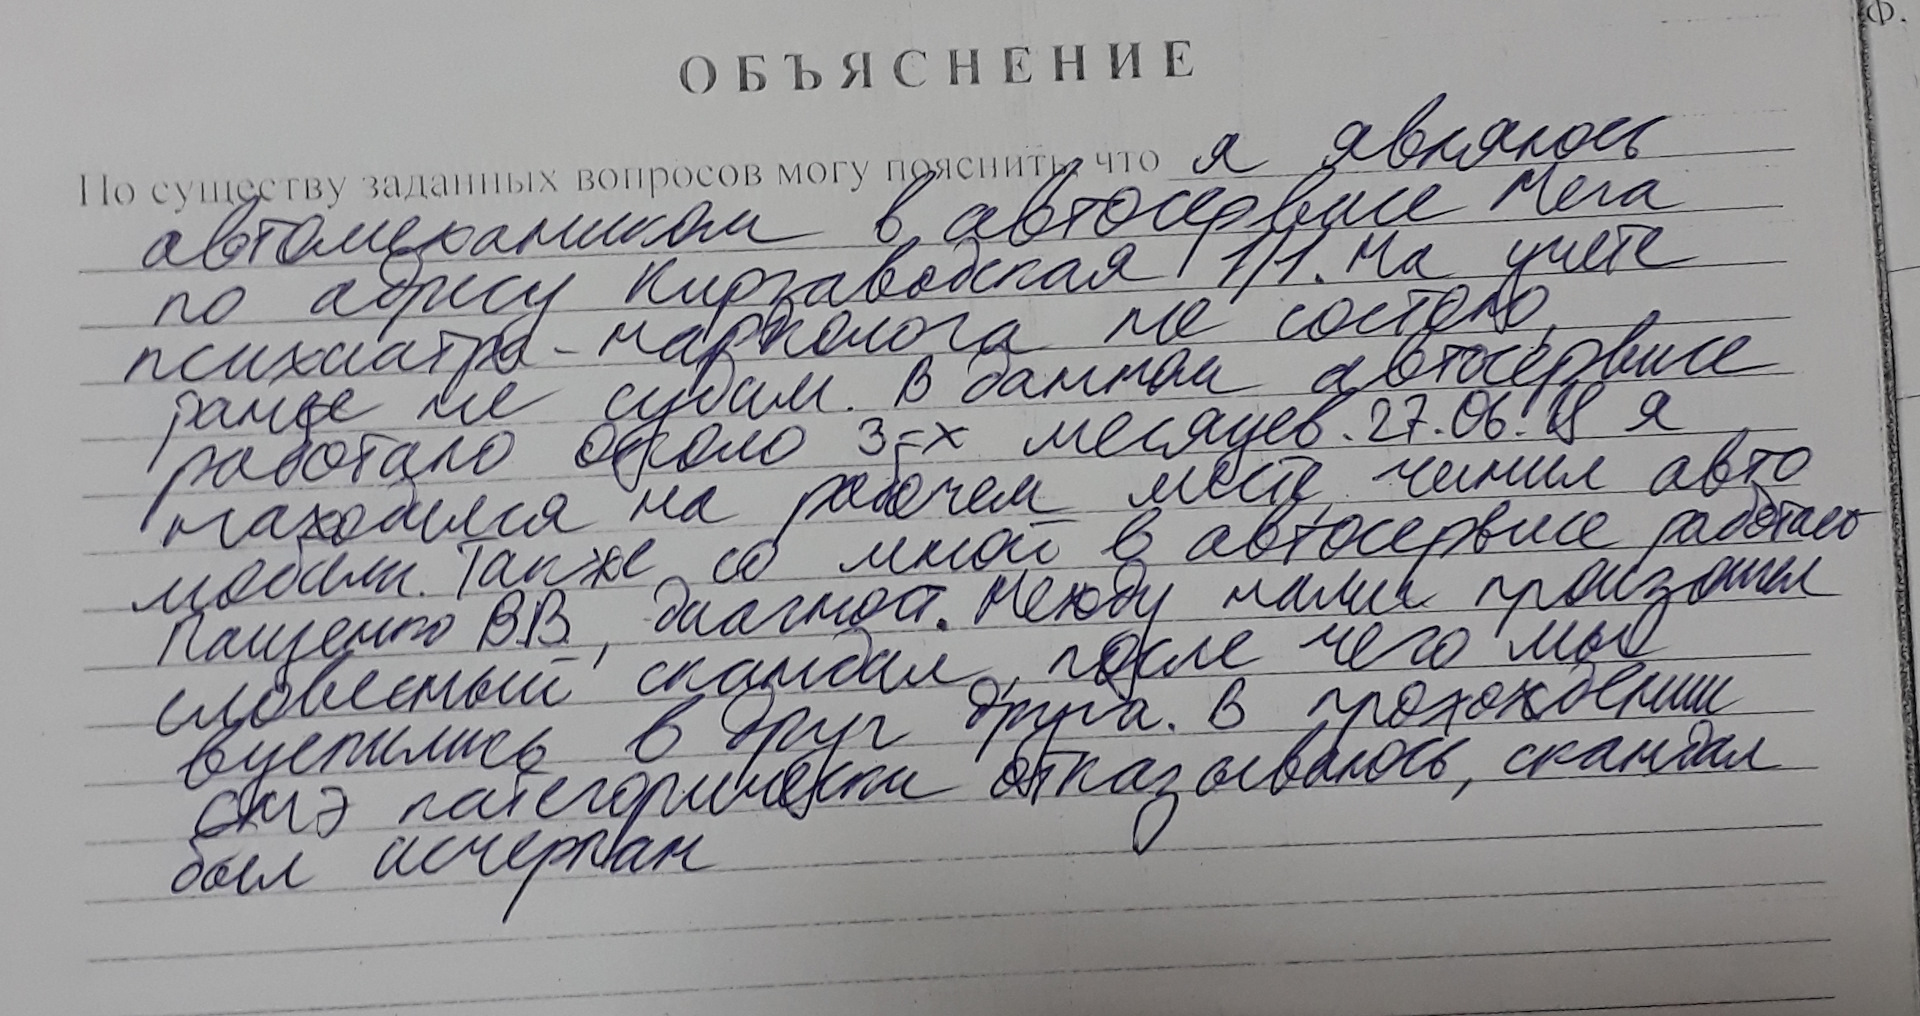 Ф.
ОБЪЯСНЕНИЕ
По существу заданных вопросов могу пояснить, что я являюсь
автомехаником в автосервисе Мега
по адресу Кирзаводская 1/1. На учете
психиатра-нарколога не состою,
ранее не судим. В данном автосервисе
работаю около 3-х месяцев. 27.06.18 я
находился на рабочем месте, чинил авто
мобили. Также со мной в автосервисе работает
Пащенко В.В., диагност. Между нами произошел
словесный скандал, после чего мы
вцепились в друг друга. В прохождении
СМЭ категорически отказываюсь, скандал
был исчерпан